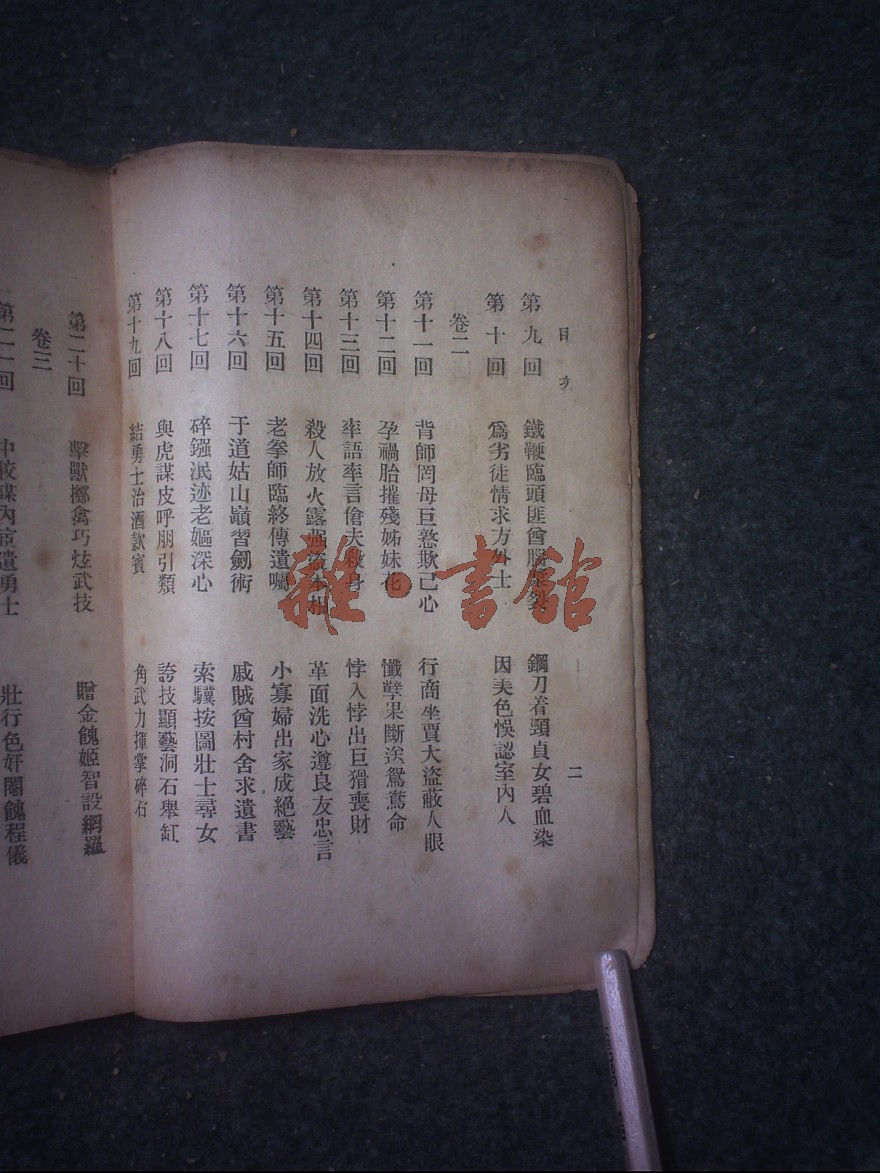 目次
二
第九回 鐵鞭臨頭匪酋腦裂 鋼刀着頸貞女碧血染
第十回 爲劣徒情求方外士 因美色悞認室內人
卷二
第十一回 背師罔母巨憝欺己心 行商坐賈大盜蔽人眼
第十二回 孕禍胎摧殘姊妹花 懺孽果斷送鴛鴦命
第十三回 率語率言傖夫殺身 悖入悖出巨猾喪財
第十四回 殺人放火露强盜本相 革面洗心遵良友忠言
第十五回 老拳師臨終傳遺囑 小寡婦出家成絕藝
第十六回 于道姑山巔習劍術 戚賊酋村舍求遺書
第十七回 碎鏹泯迹老嫗深心 索驥按圖壯士尋女
第十八回 與虎謀皮呼朋引類 誇技顯藝洞石舉缸
第十九回 結勇士治酒款賓 角武力揮掌碎石
第二十回 擊獸擲禽巧炫武技 贈金餽姬智設網羅
卷三
第二一回 遣勇士 壯行色奸閹餽程儀
雜·書館